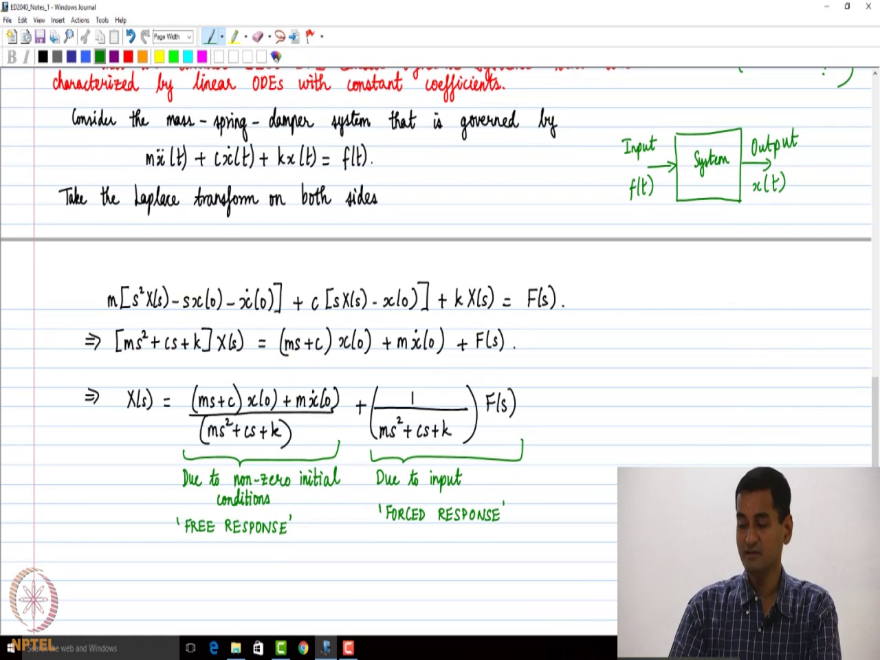 ED2040_Notes_1 - Windows Journal
File Edit View Insert Actions Tools Help
Page Width
B I
characterized by linear ODEs with constant coefficients.
Consider the mass-spring-damper system that is governed by
mẍ(t) + cẋ(t) + kx(t) = f(t).
Take the Laplace transform on both sides
Input
f(t)
System
Output
x(t)
m[s²X(s) - sx(0) - ẋ(0)] + c[sX(s) - x(0)] + kX(s) = F(s).
⇒ [ms² + cs + k]X(s) = (ms+c)x(0) + mẋ(0) + F(s).
⇒ X(s) = (ms+c)x(0) + mẋ(0) / (ms² + cs + k) + (1 / ms² + cs + k) F(s)
Due to non-zero initial
conditions
'FREE RESPONSE'
Due to input
'FORCED RESPONSE'
NPTEL
the web and Windows